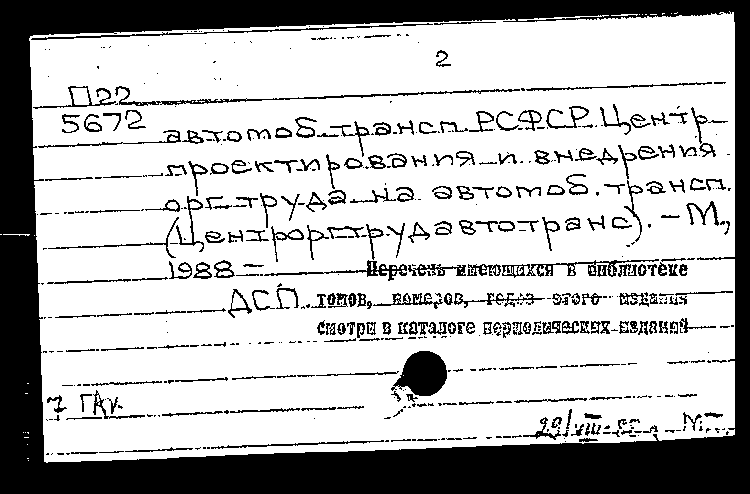 2
П22
5672
автомоб. трансп. РСФСР. Центр
проектирования и внедрения
орг. труда на автомоб. трансп.
(Центроргтрудавтотранс). – М.,
1988 – Перечень имеющихся в библиотеке
ДСП. томов, номеров, годов этого издания
смотри в каталоге периодических изданий
7
29/VIII-